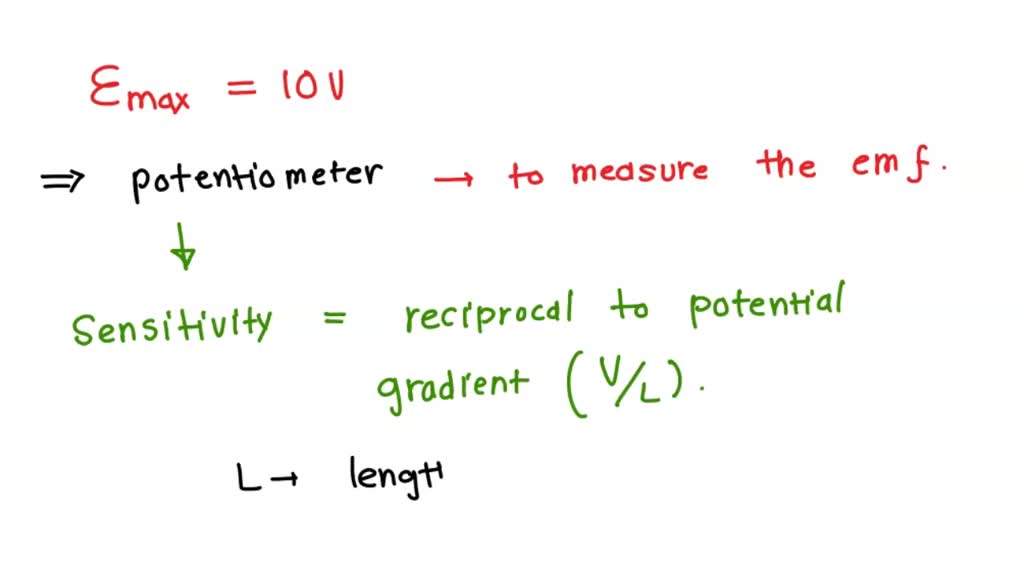 Ɛmax = 10V
⇒ potentiometer → to measure the emf.
↓
Sensitivity = reciprocal to potential
gradient (V/L).
L → length